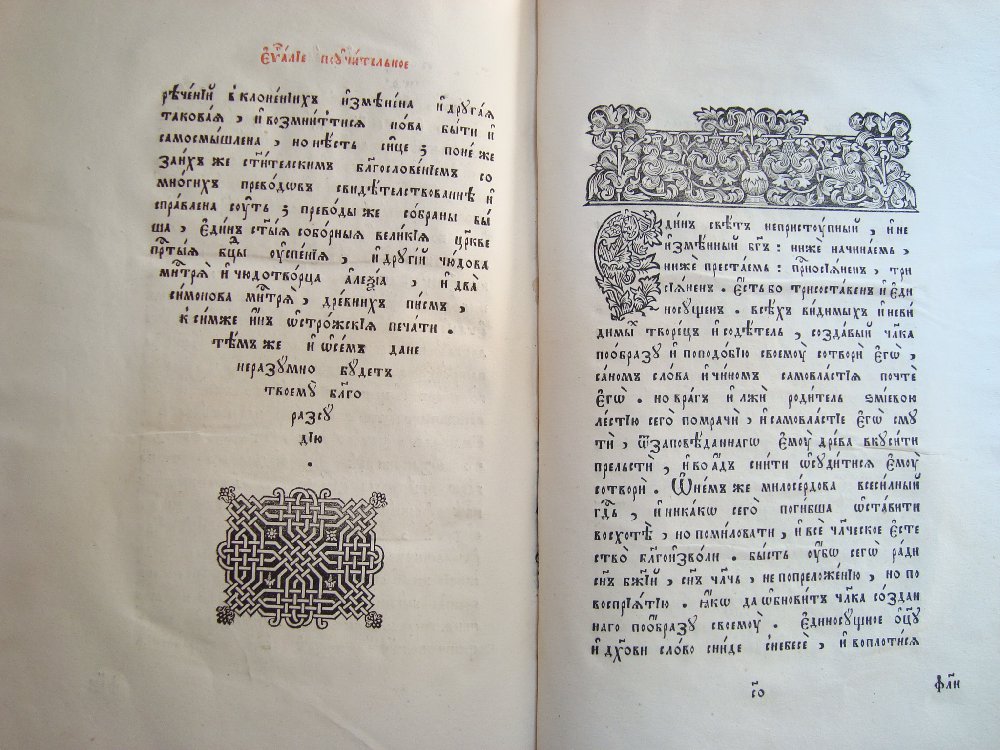 Є҆ѵⷢ҇а́лїе поꙋчи́тельное
рече́нїй в клоне́нїихъ и҆змѣне́на и҆ дрꙋга́ѧ
такова́ѧ, и҆ возмни́тсѧ но́ва бы́ти и҆
самосмы́шлена, но нѣ́сть си́це : поне́же
за и́хъ же ст҃и́телскимъ блⷢ҇ослове́нїемъ со
мно́гихъ прево́дѡвъ свидѣ́телствованнѣ и҆
спра́влена сꙋ́ть : прево́ды же собраны бы́
ша, є҆ди́нъ ст҃ы́ѧ собо́рныѧ вели́кїѧ цр҃кве
прⷭ҇ты́ѧ бц҃ы ᲂу҆спе́нїѧ, и҆ дрꙋгі́й чю́дова
ми́трѧ и҆ чюдотво́рца а҆леѯі́а, и҆ два̀
си́монова мн҃трѧ̀, дре́внихъ пи́смъ,
к си́мже и҆ и҆́нъ ѡ҆стро́жскїѧ печа́ти .
тѣ́мъ же и҆ ѡ҆ се́мъ да не
неразꙋ́мно бꙋ́детъ
твоемꙋ̀ бл҃го
разсꙋ́
дїю
Є҆ди́нъ свѣ́тъ непристꙋ́пный, и҆ не
и҆змѣ́нный бг҃ъ : нижѐ начина́емь,
нижѐ преста́емь : прⷭ҇носїѧ́ненъ, три
сїѧ́ненъ . є҆́сть бо трисоста́венъ и҆ є҆ди
носꙋ́щенъ . всѣ́хъ ви́димыхъ и҆ неви́
димы́ⷯ творе́цъ и҆ содѣ́тель, созда́вый чл҃ка
по ѻ҆́бразꙋ и҆ по подо́бїю своемꙋ̀ сотворѝ є҆го̀,
са́номъ сло́ва и҆ чи́номъ самовла́стїѧ почтѐ
є҆го̀ . но вра́гъ и҆ лжѝ роди́тель ѕмїе́вою
ле́стїю сего̀ помрачѝ, и҆ самовла́стїе є҆гѡ̀ смꙋ
тѝ, ѿ заповѣ́даннагѡ є҆мꙋ̀ дре́ва вкꙋси́ти
прельстѝ, и҆ во а҆́дъ сни́ти ѡ҆сꙋди́тисѧ є҆мꙋ̀
сотворѝ . Ѽ не́мъ же милосе́рдова всеси́лный
гдⷭ҇ь, и҆ ника́кѡ сего̀ поги́бша ѡ҆ста́вити
восхотѣ̀, но поми́ловати, и҆ всѐ чл҃ческое є҆сте
ство̀ бл҃гоизво́ли . бы́сть ᲂу҆̀бѡ сегѡ̀ ра́ди
сн҃ъ бж҃їй, сн҃ъ чл҃чь, не по преложе́нїю, но по
воспрїѧ́тїю . ꙗ҆́кѡ да ѡ҆бнови́тъ чл҃ка со́здан
наго по ѻ҆́бразꙋ своемꙋ̀ . є҆диносꙋ́щное ѻ҆ц҃ꙋ̀
и҆ дх҃ови сло́во сни́де с небесѐ, и҆ воплоти́сѧ
со
фли